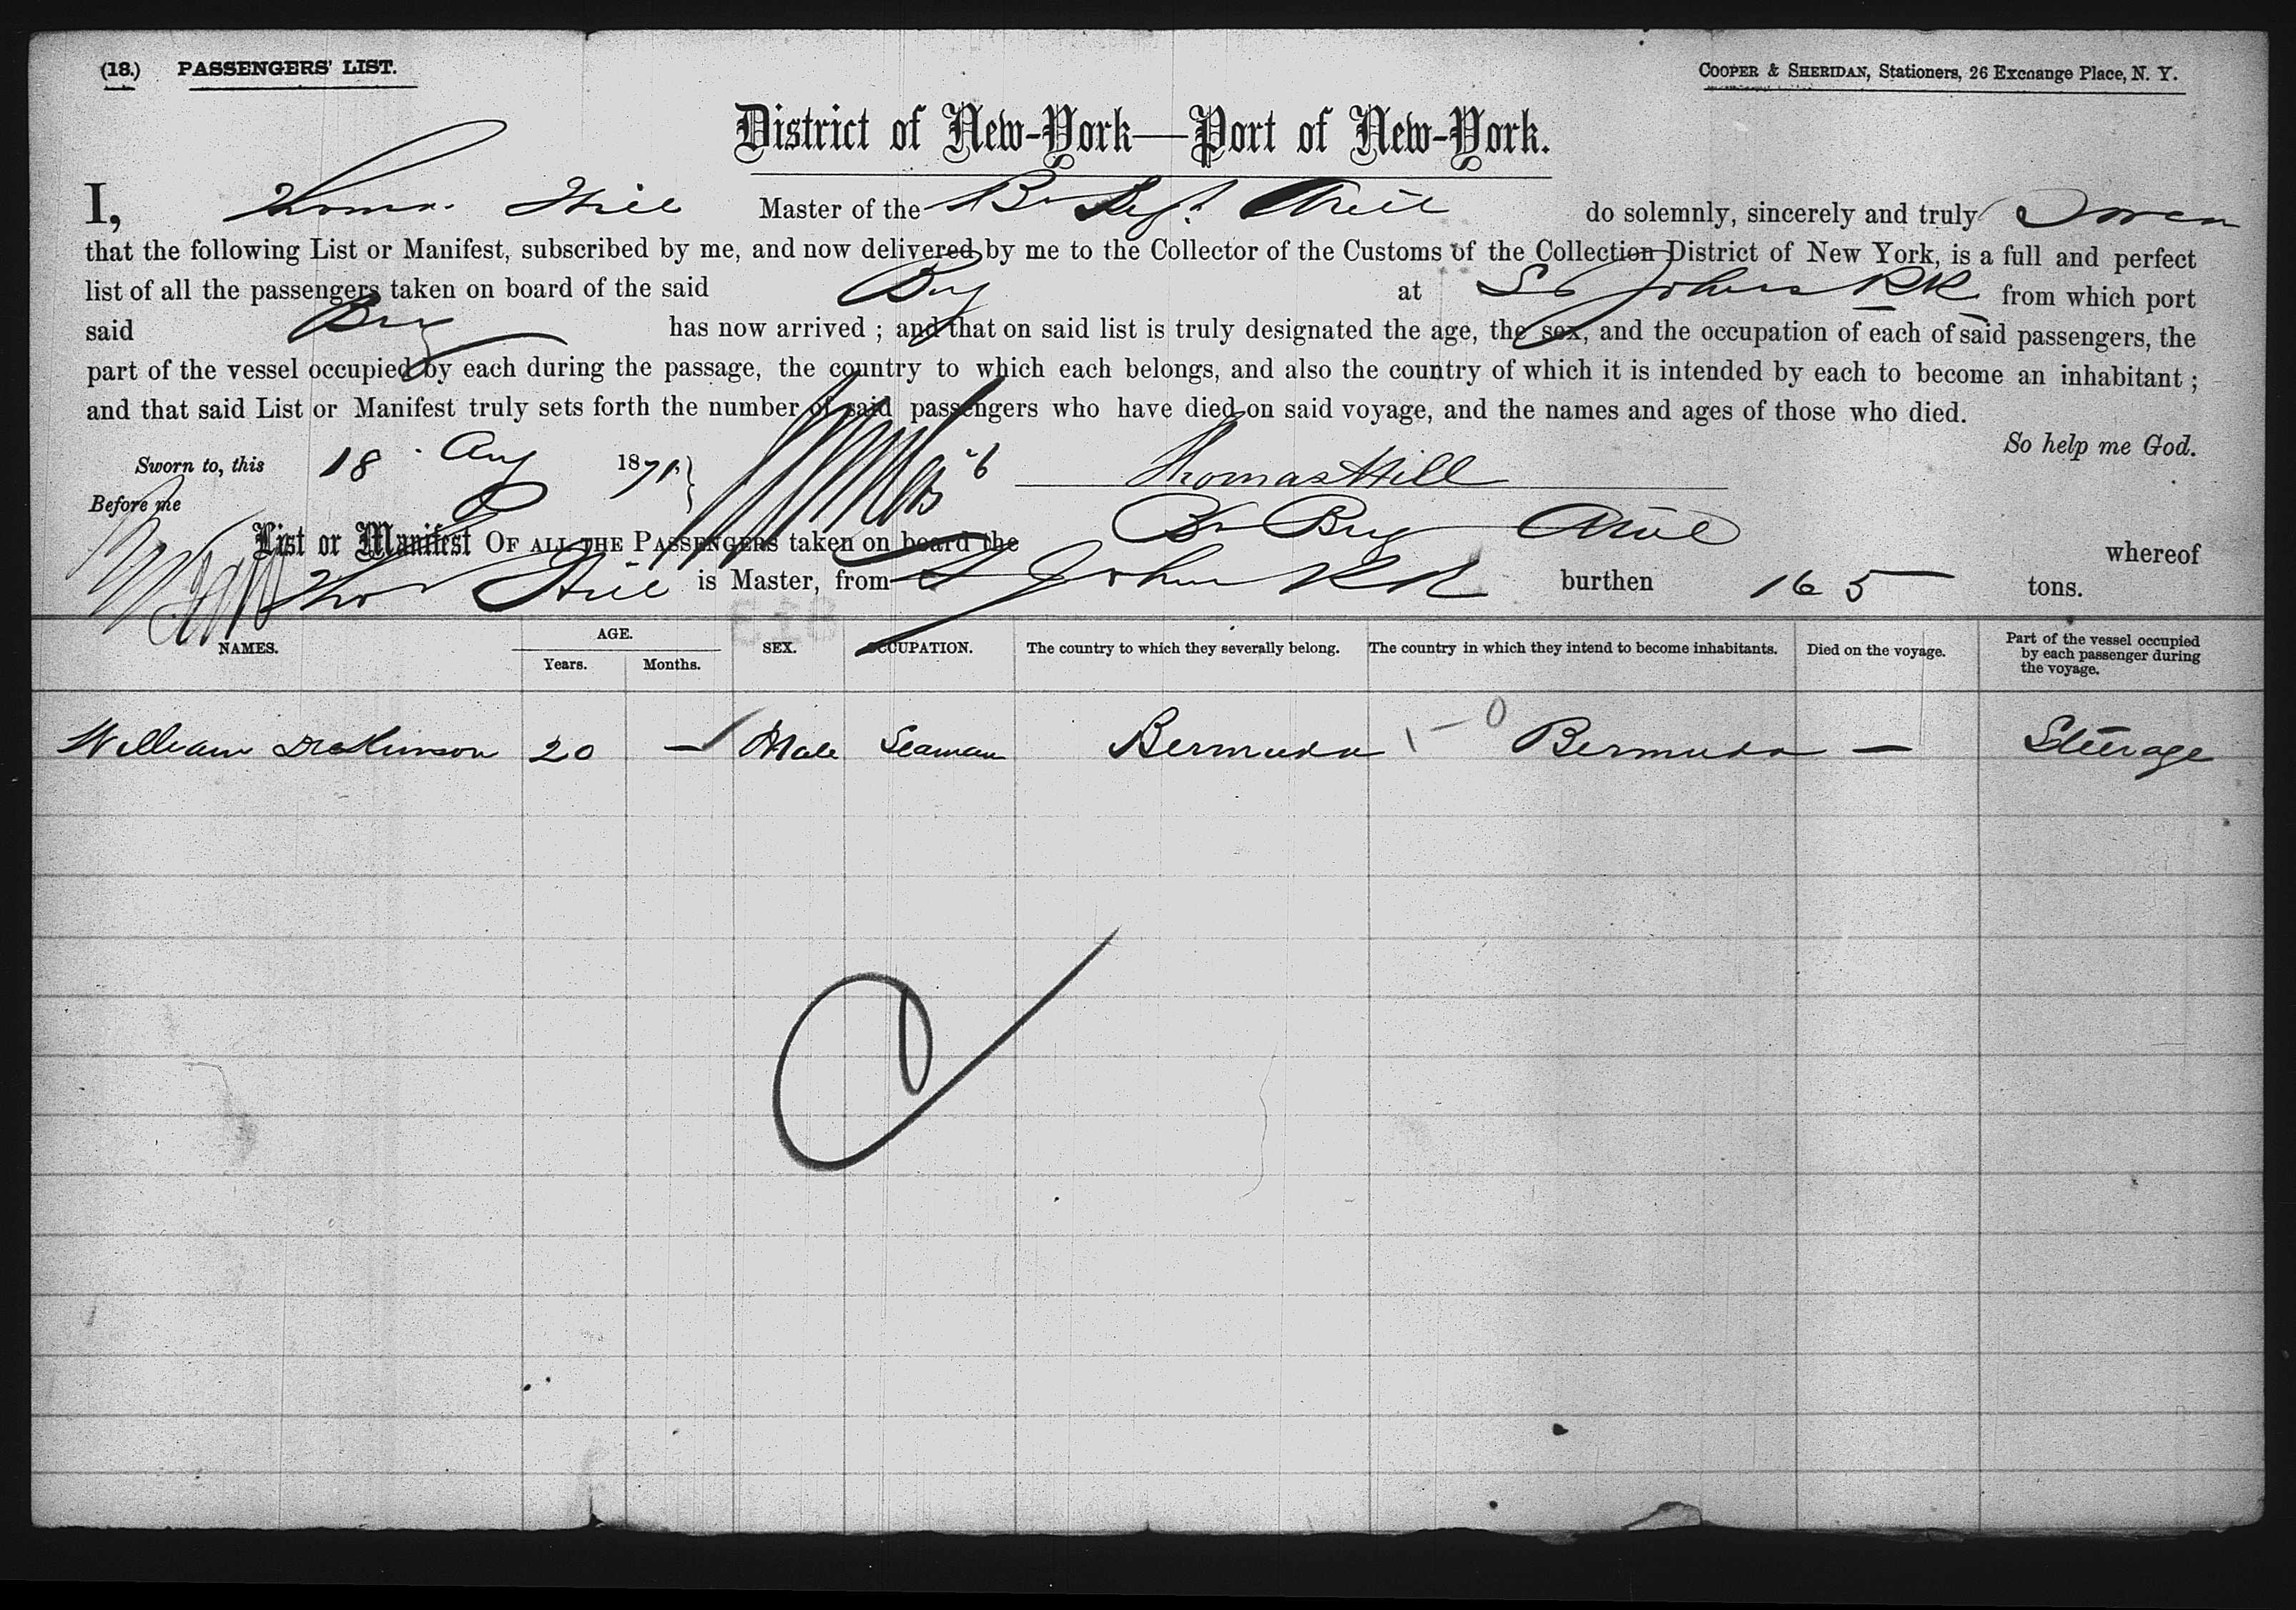 (18.) PASSENGERS' LIST.
COOPER & SHERIDAN, Stationers, 26 Exchange Place, N. Y.
District of New-York—Port of New-York.
I, Thomas Hill Master of the Br Ariel do solemnly, sincerely and truly Swear
that the following List or Manifest, subscribed by me, and now delivered by me to the Collector of the Customs of the Collection District of New York, is a full and perfect
list of all the passengers taken on board of the said Brig at St Johns PR from which port
said Brig has now arrived ; and that on said list is truly designated the age, the sex, and the occupation of each of said passengers, the
part of the vessel occupied by each during the passage, the country to which each belongs, and also the country of which it is intended by each to become an inhabitant ;
and that said List or Manifest truly sets forth the number of said passengers who have died on said voyage, and the names and ages of those who died.
So help me God.
Sworn to, this 18 Aug 1871
Thomas Hill
Before me
List or Manifest OF ALL THE PASSENGERS taken on board the Br Brig Ariel whereof
Thos Hill is Master, from St Johns PR burthen 165 tons.
NAMES. AGE. Years. Months. SEX. OCCUPATION. The country to which they severally belong. The country in which they intend to become inhabitants. Died on the voyage. Part of the vessel occupied by each passenger during the voyage.
William Dickinson 20 — Male Seaman Bermuda 1-0 Bermuda — Steerage